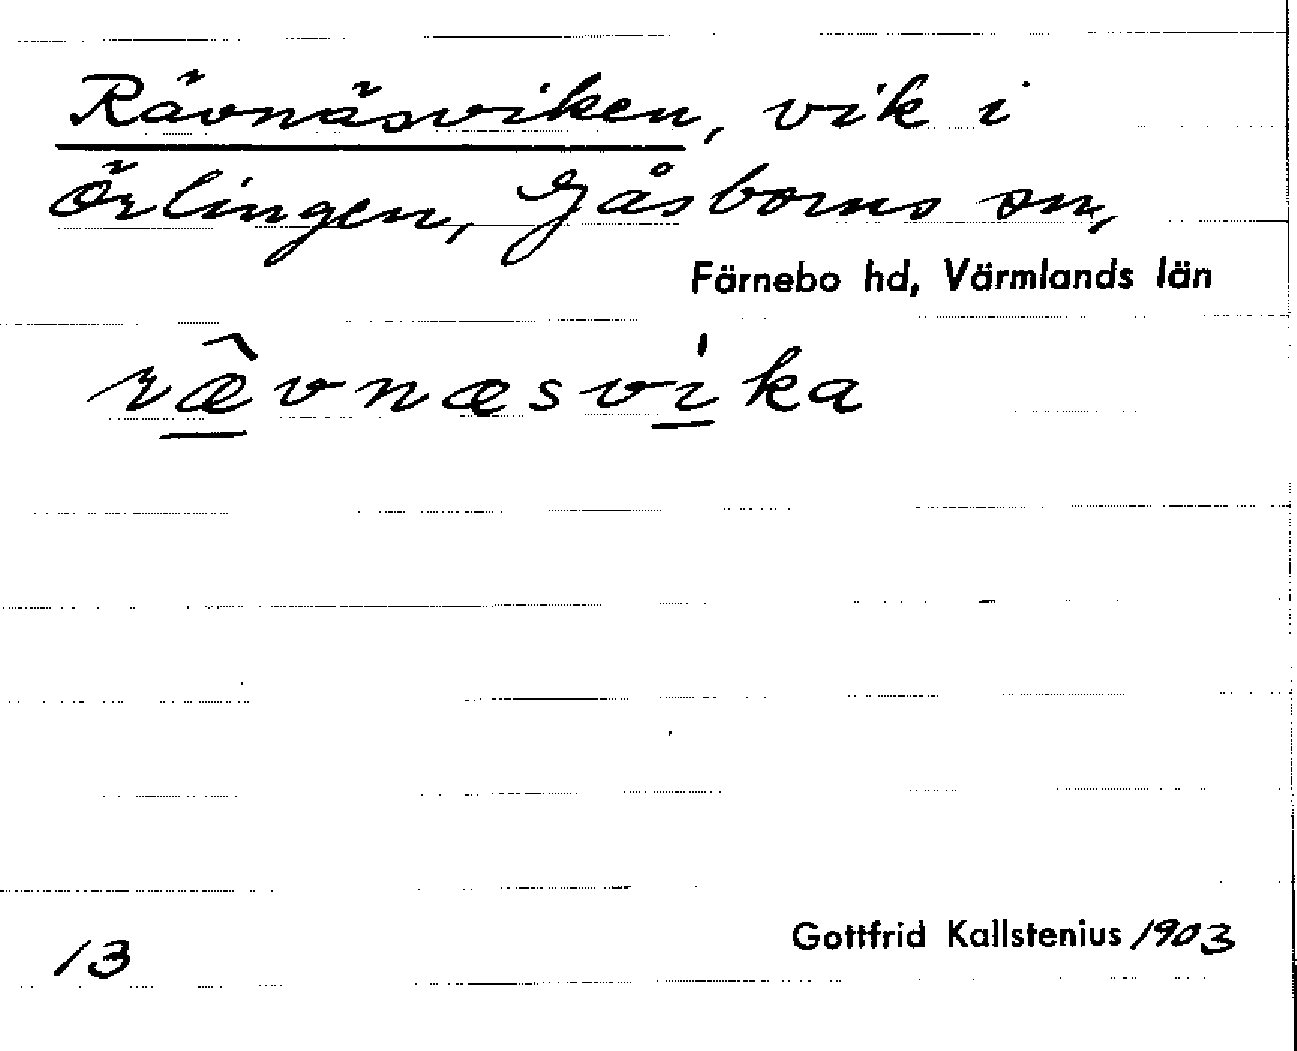 Rävnäsviken, vik i
Örlingen, Gåsborns sn,
Färnebo hd, Värmlands län
ræ̂vnæsvi̍ka
13
Gottfrid Kallstenius 1903